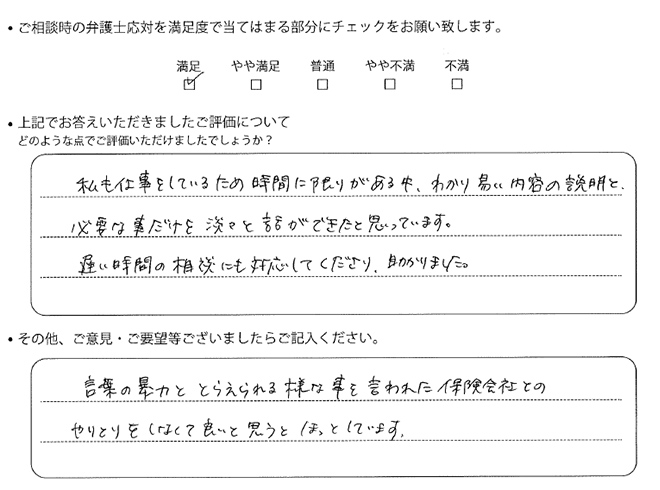 • ご相談時の弁護士応対を満足度で当てはまる部分にチェックをお願い致します。
満足 やや満足 普通 やや不満 不満
☑ □ □ □ □
• 上記でお答えいただきましたご評価について
どのような点でご評価いただけましたでしょうか？
私も仕事をしているため時間に限りがある中、わかり易い内容の説明と、
必要な事だけを淡々と話ができたと思っています。
遅い時間の相談にも対応してくださり、助かりました。
• その他、ご意見・ご要望等ございましたらご記入ください。
言葉の暴力ととらえられる様な事を言われた保険会社との
やりとりをしなくて良いと思うとほっとしています。